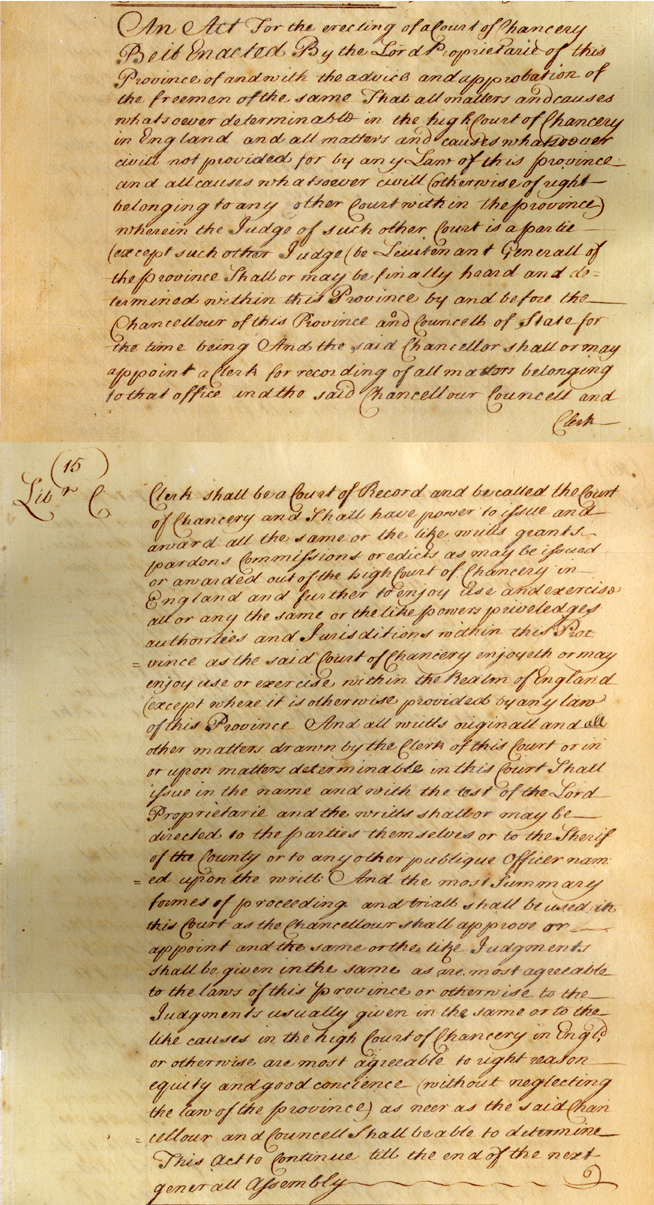 An Act For the erecting of a Court of Chancery
Be it Enacted By the Lord Proprietarie of this
Province of and with the advice and approbation of
the freemen of the same That all matters and causes
whatsoever determinable in the high Court of Chancery
in England and all matters and causes whatsoever
civill not provided for by any Law of this province
and all causes whatsoever civill (otherwise of right
belonging to any other Court within the province)
wherein the Judge of such other Court is a partie
(except such other Judge (be Leivtenant Generall of
the province Shall or may be finally heard and de=
termined within this Province by and before the
Chancellour of this Province and Councell of State for
the time being And the said Chancellor shall or may
appoint a Clerk for recording of all matters belonging
to that office and the said Chancellour Councell and
Clerk
(15)
Libr C
Clerk shall be a Court of Record and be called the Court
of Chancery and Shall have power to issue and
award all the same or the like writts grants
pardons Commissions or edicts as may be issued
or awarded out of the high Court of Chancery in
England and further to enjoy use and exercise
all or any the same or the like powers priveledges
authorities and Jurisditions within this Pro
=vince as the said Court of Chancery enjoyeth or may
enjoy use or exercise within the Realm of England
(except where it is otherwise provided by any law
of this Province And all writts originall and all
other matters drawn by the Clerk of this Court or in
or upon matters determinable in this Court Shall
issue in the name and with the test of the Lord
Proprietarie and the writts shall or may be
directed to the parties themselves or to the Sherif
of the County or to any other publique Officer nam
=ed upon the writt. And the most Summary
formes of proceeding and triall shall be used in
this Court as the Chancellour shall approve or
appoint and the same or the like Judgments
shall be given in the same as are most agreeable
to the laws of this province or otherwise to the
Judgments usually given in the same or to the
like causes in the high Court of Chancery in Engld
or otherwise are most agreeable to right reason
equity and good concience (without neglecting
the law of the province) as neer as the said Chan
=cellour and Councell Shall be able to determine
This Act to Continue till the end of the next
generall Assembly